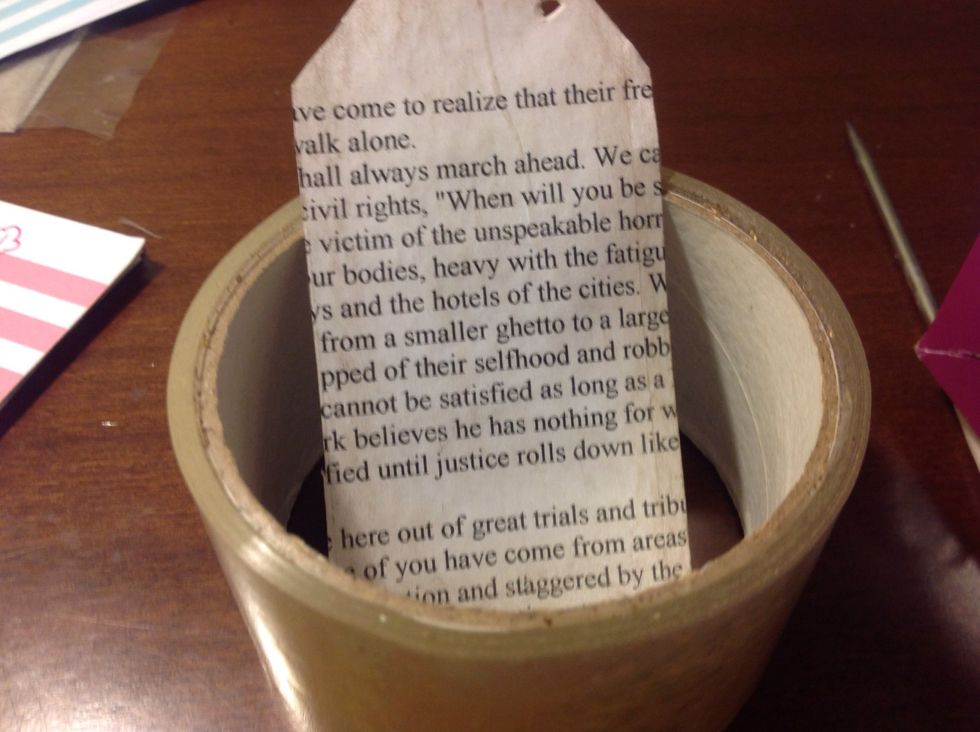 ve come to realize that their fre
valk alone.
hall always march ahead. We ca
civil rights, "When will you be s
victim of the unspeakable horr
ur bodies, heavy with the fatigu
ys and the hotels of the cities. W
from a smaller ghetto to a large
pped of their selfhood and robb
cannot be satisfied as long as a
rk believes he has nothing for w
fied until justice rolls down like
here out of great trials and tribu
of you have come from areas
tion and staggered by the